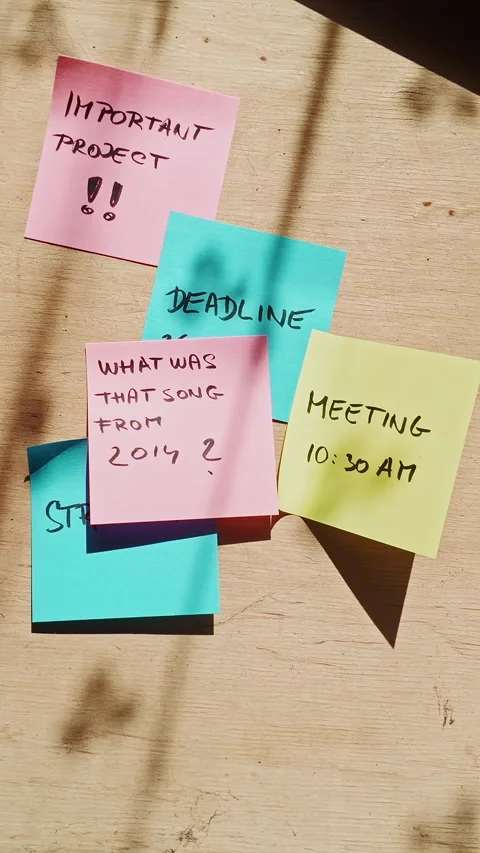 IMPORTANT
PROJECT
!!
DEADLINE
WHAT WAS
THAT SONG
FROM
2014 ?
MEETING
10:30 AM